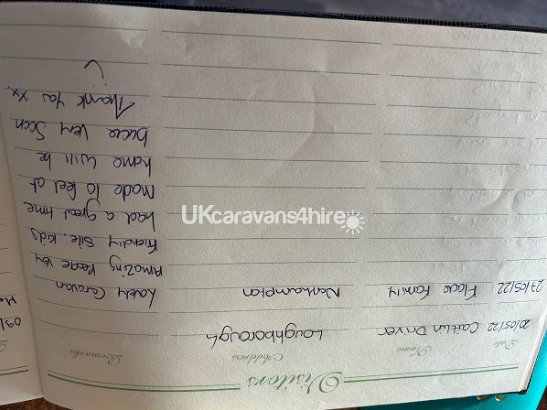 Visitors
Date Name Address Remarks
20/05/22 Caitlin Driver Loughborough
27/05/22 Flowe Family Northampton Lovely Caravan
Amazing
friendly site. Kids
had a great time
Made to feel at
home will be
back Very Soon
Thank You xx
UKcaravans4hire
09/